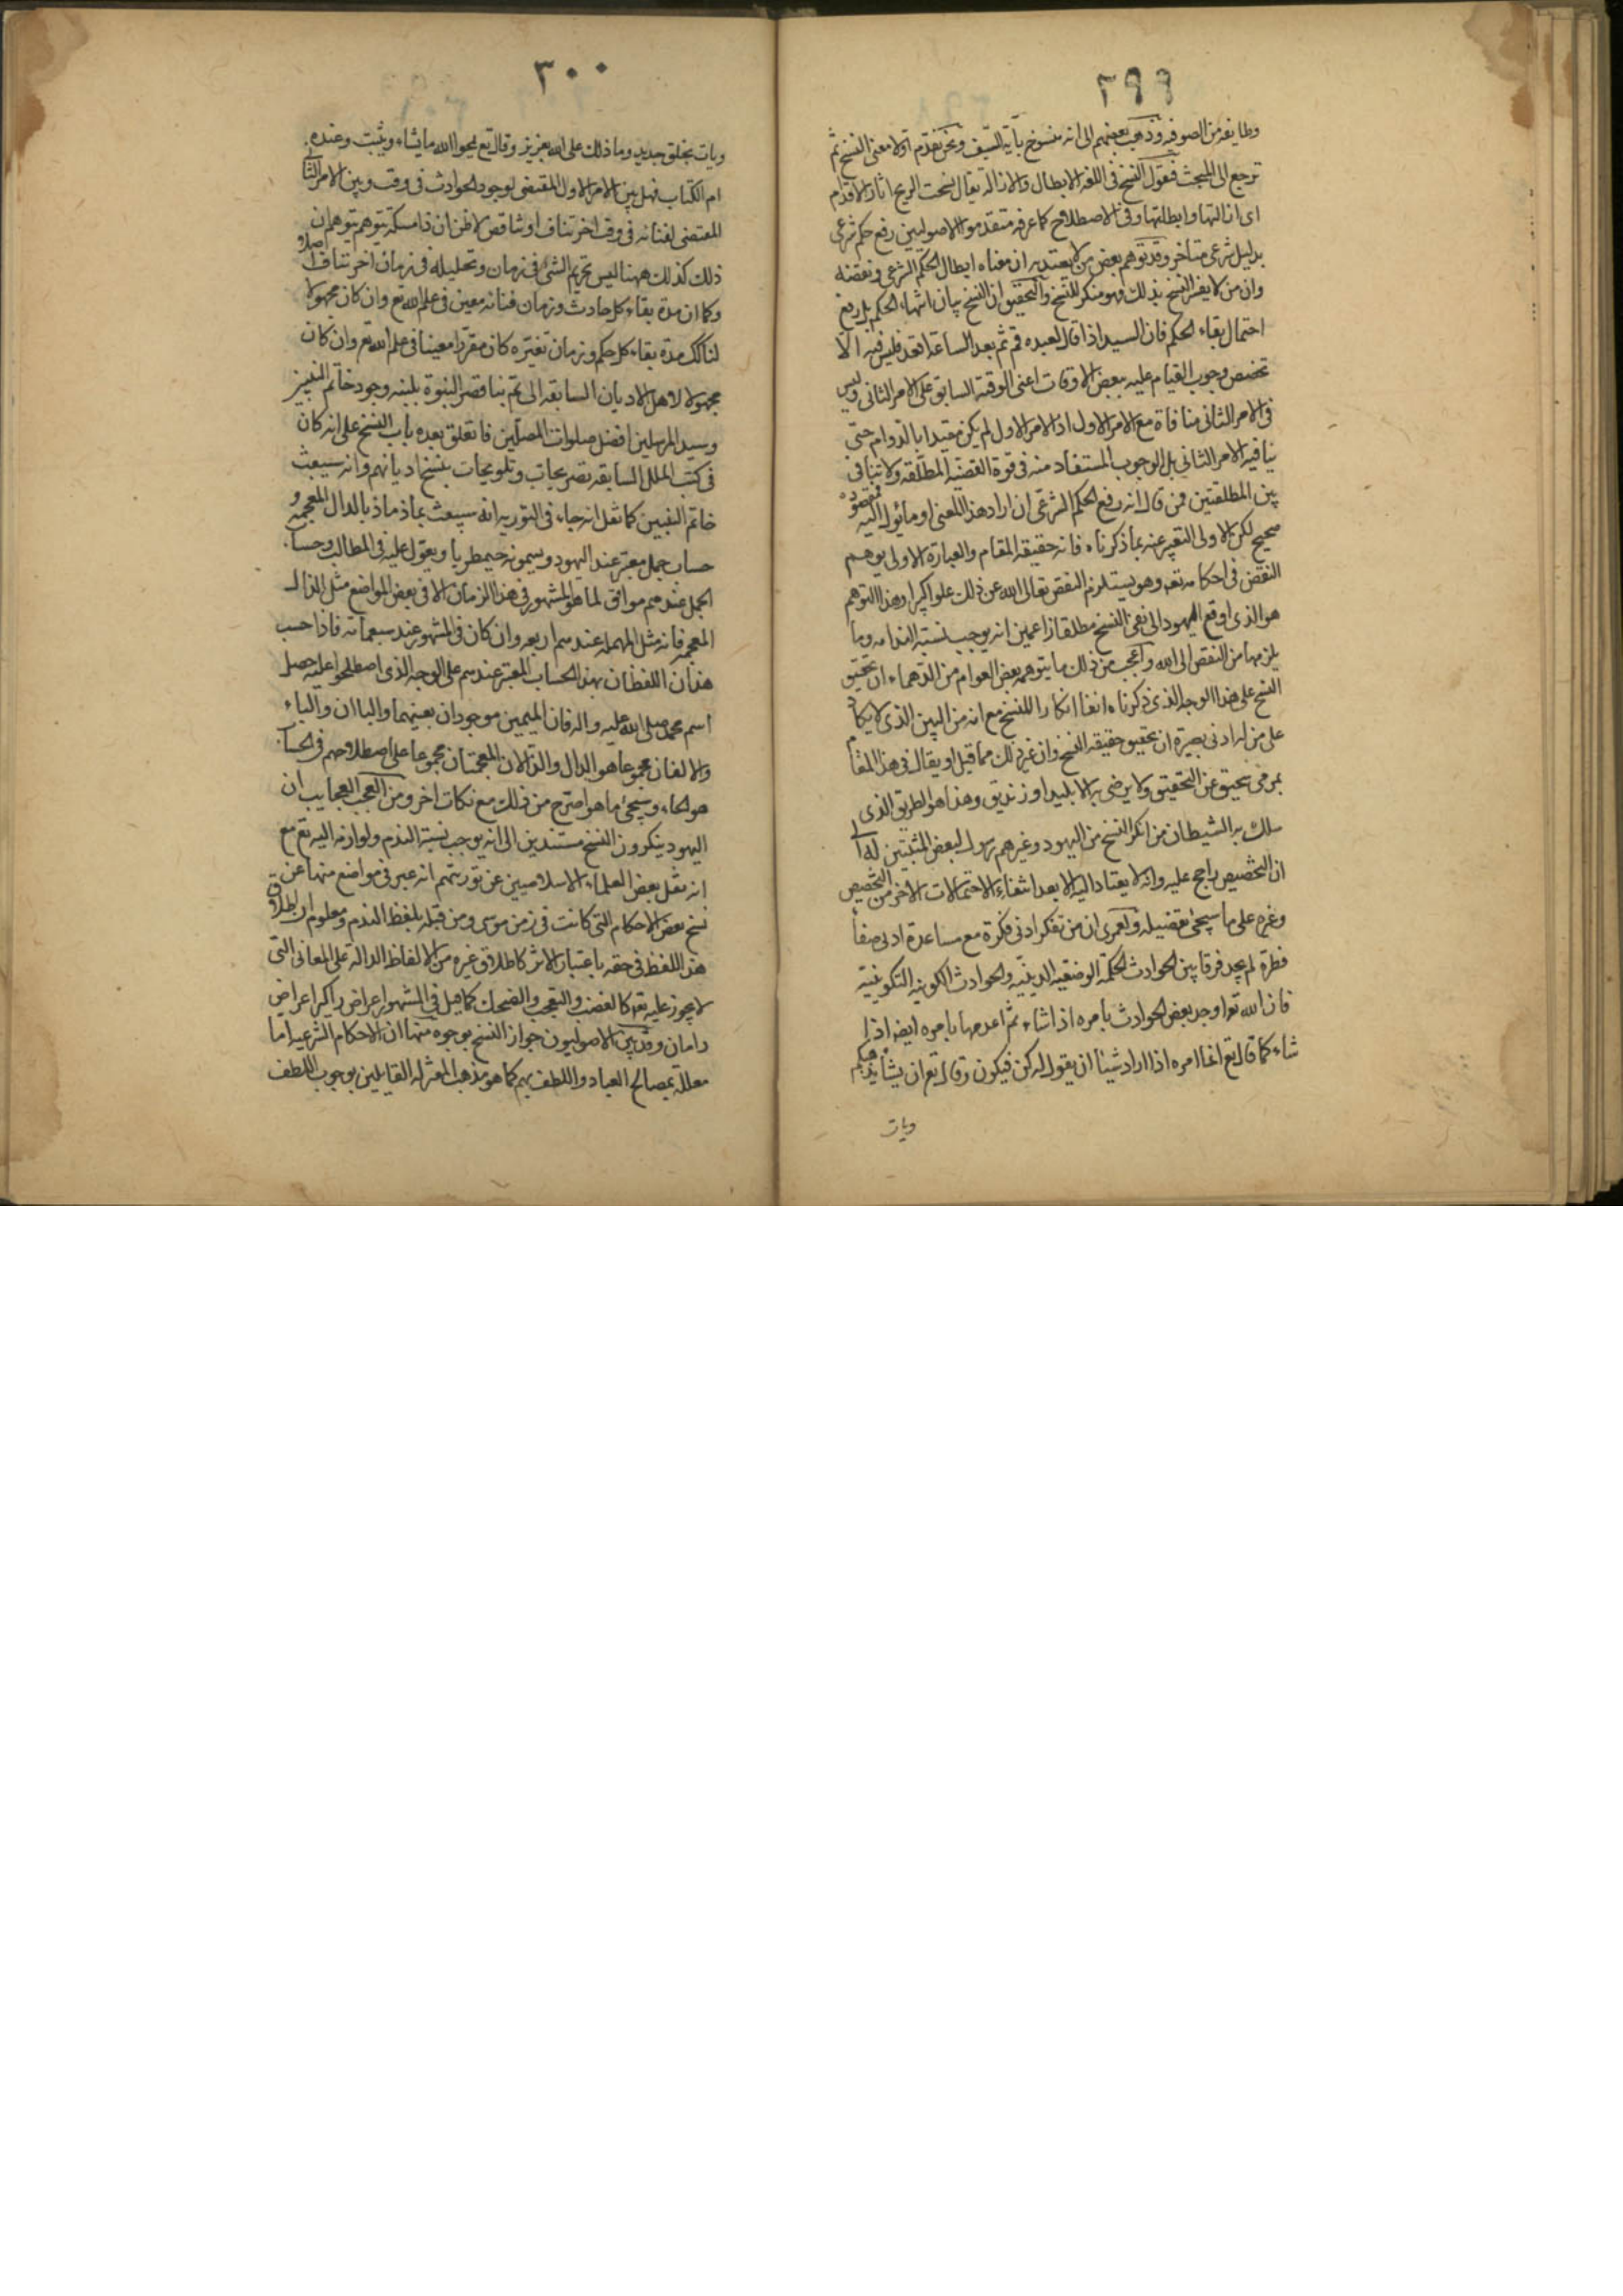 ٢٩٩
وطايفة من الصوفية وذهب بعضهم الى انه منسوخ بآية السيف ونحن نقدم اولا معنى النسخ ثم
نرجع الى المبحث فنقول النسخ فى اللغة الابطال والازالة يقال نسخت الريح اثار الاقدام
اى ازالتها وابطلتها وفى الاصطلاح كما عرفه متقدموا الاصوليين رفع حكم شرعى
بدليل شرعى متأخر وقد توهم بعض من لا يعتد به ان معناه ابطال الحكم الشرعى ونقضه
وان من لا يفسر النسخ بذلك فهو منكر للنسخ والتحقيق ان النسخ بيان انتهاء الحكم بل رفع
احتمال بقاء الحكم فان السيد اذا قال لعبده قم ثم بعد الساعة اقعد فليس فيه الا
تخصص وجوب القيام عليه ببعض الاوقات اعنى الوقت السابق على الامر الثانى وليس
فى الامر الثانى منافاة مع الامر الاول اذ الامر الاول لم يكن مقيدا بالدوام حتى
ينافيه الامر الثانى بل الوجوب المستفاد منه فى قوة القضية المطلقة ولا تنافى
بين المطلقتين فمن قال انه رفع الحكم الشرعى ان اراد هذا المعنى او ما يؤل اليه فمقصوده
صحيح لكن الاولى التعبير عنه بما ذكرناه فانه حقيقة المقام والعبارة الاولى يوهم
النقض فى احكامه تعه وهو يستلزم النقص تعالى الله عن ذلك علوا كبيرا وهذا التوهم
هو الذى اوقع اليهود الى نفى النسخ مطلقا زاعمين انه يوجب نسبة الندامة وما
يلزمها من النقص الى الله واعجب من ذلك ما يتوهمه بعض العوام من الدهماء ان تحقيق
النسخ على هذا الوجه الذى ذكرناه انفا انكارا للنسخ مع انه من البين الذى لا يكاد
على من له ادنى بصيرة ان تحقيق حقيقة النسخ وان غير ذلك مما قيل او يقال فى هذا المقام
بمرمى سحيق عن التحقيق ولا يرضى به الا بليد او زنديق وهذا هو الطريق الذى
سلك به الشيطان من انكر النسخ من اليهود وغيرهم لبعض المثبتين له
ان التخصيص راجح عليه وانه لا يعتاد اليه الا بعد انتفاء الاحتمالات الاخر من التخصيص
وغيره على ما سيجئ تفصيله ولعمرى ان من تفكر ادنى فكرة مع مساعدة ادنى صفاء
فطرة لم يجد فرقا بين الحوادث الوضعية الدينية والحوادث الكونية التكوينية
فان الله تع اوجد بعض الحوادث بامره اذا شاء ثم اعدمها بامره ايضا اذا
شاء كما قال تع انما امره اذا اراد شيئا ان يقول له كن فيكون وقال تع ان يشأ يذهبكم
ويات
٣٠٠
ويات بخلق جديد وما ذلك على الله بعزيز وقال تع يمحوا الله ما يشاء ويثبت وعنده
ام الكتاب فهل بين الامر الاول المقتضى لوجود الحوادث فى وقت وبين الامر الثانى
المقتضى لفنائه فى وقت اخر تناف او تناقض لا اظن ان ذا مسكة يتوهم يتوهم ان
ذلك كذلك ههنا ليس تحريم الشئ فى زمان وتحليله فى زمان اخر تناف اصلا و
وكما ان مدة بقاء كل حادث وزمان فنائه معين فى علم الله تع وان كان مجهولا
لنا كك مدة بقاء كل حكم وزمان تغيره كان مقررا معينا فى علم الله تع وان كان
مجهولا لاهل الاديان السابقة الى تم بنا قصر النبوة بلبنة وجود خاتم النبيين
وسيد المرسلين افضل صلوات المصلين فاتعلق بعده باب النسخ على انه كان
فى كتب الملل السابقة تصريحات وتلويحات بنسخ اديانهم وانه سيبعث
خاتم النبيين كما نقل انه جاء فى التورية انه سيبعث بماذ ماذ بالدال المعجمة و
حساب جمل معتبر عند اليهود ويسمونه جيمطريا ويعول عليه فى المطالب وحساب
الجمل عندهم موافق لما هو المشهور فى هذا الزمان الا فى بعض المواضع مثل الذال
المعجمة فانه مثل المهملة عندهم اربعة وان كان فى المشهور عند سبعمائة فاذا حسب
هذان اللفظان بهذا الحساب المعتبر عندهم على الوجه الذى اصطلحوا عليه حصل
اسم محمد صلى الله عليه واله فان الميمين موجودان بعينهما والباان والباء
والالفان مجموعا هو الدال والذالان المعجمتان مجموعا على اصطلاحهم فى الحساب
هو الحاء وسيجئ ما هو اصرح من ذلك مع نكات اخر ومن العجب العجايب ان
اليهود ينكرون النسخ مستندين الى انه يوجب نسبة الندم ولوازمه اليه تع مع
انه نقل بعض العلماء الاسلاميين عن توريتهم انه عبر فى مواضع منها عن
نسخ بعض الاحكام التى كانت فى زمن موسى ومن قبله بلفظ الندم ومعلوم ان اطلاق
هذا اللفظ فى حقه باعتبار الاثر كاطلاق غيره من الالفاظ الدالة على المعانى التى
لا يجوز عليه تعه كالغضب والتعجب والضحك كما قيل فى المشهور اعراض را كير اعراض
رامان وقد بين الاصوليون جواز النسخ بوجوه منها ان الاحكام الشرعية اما
معللة بمصالح العباد واللطف بهم كما هو مذهب المعتزلة القايلين بوجوب اللطف